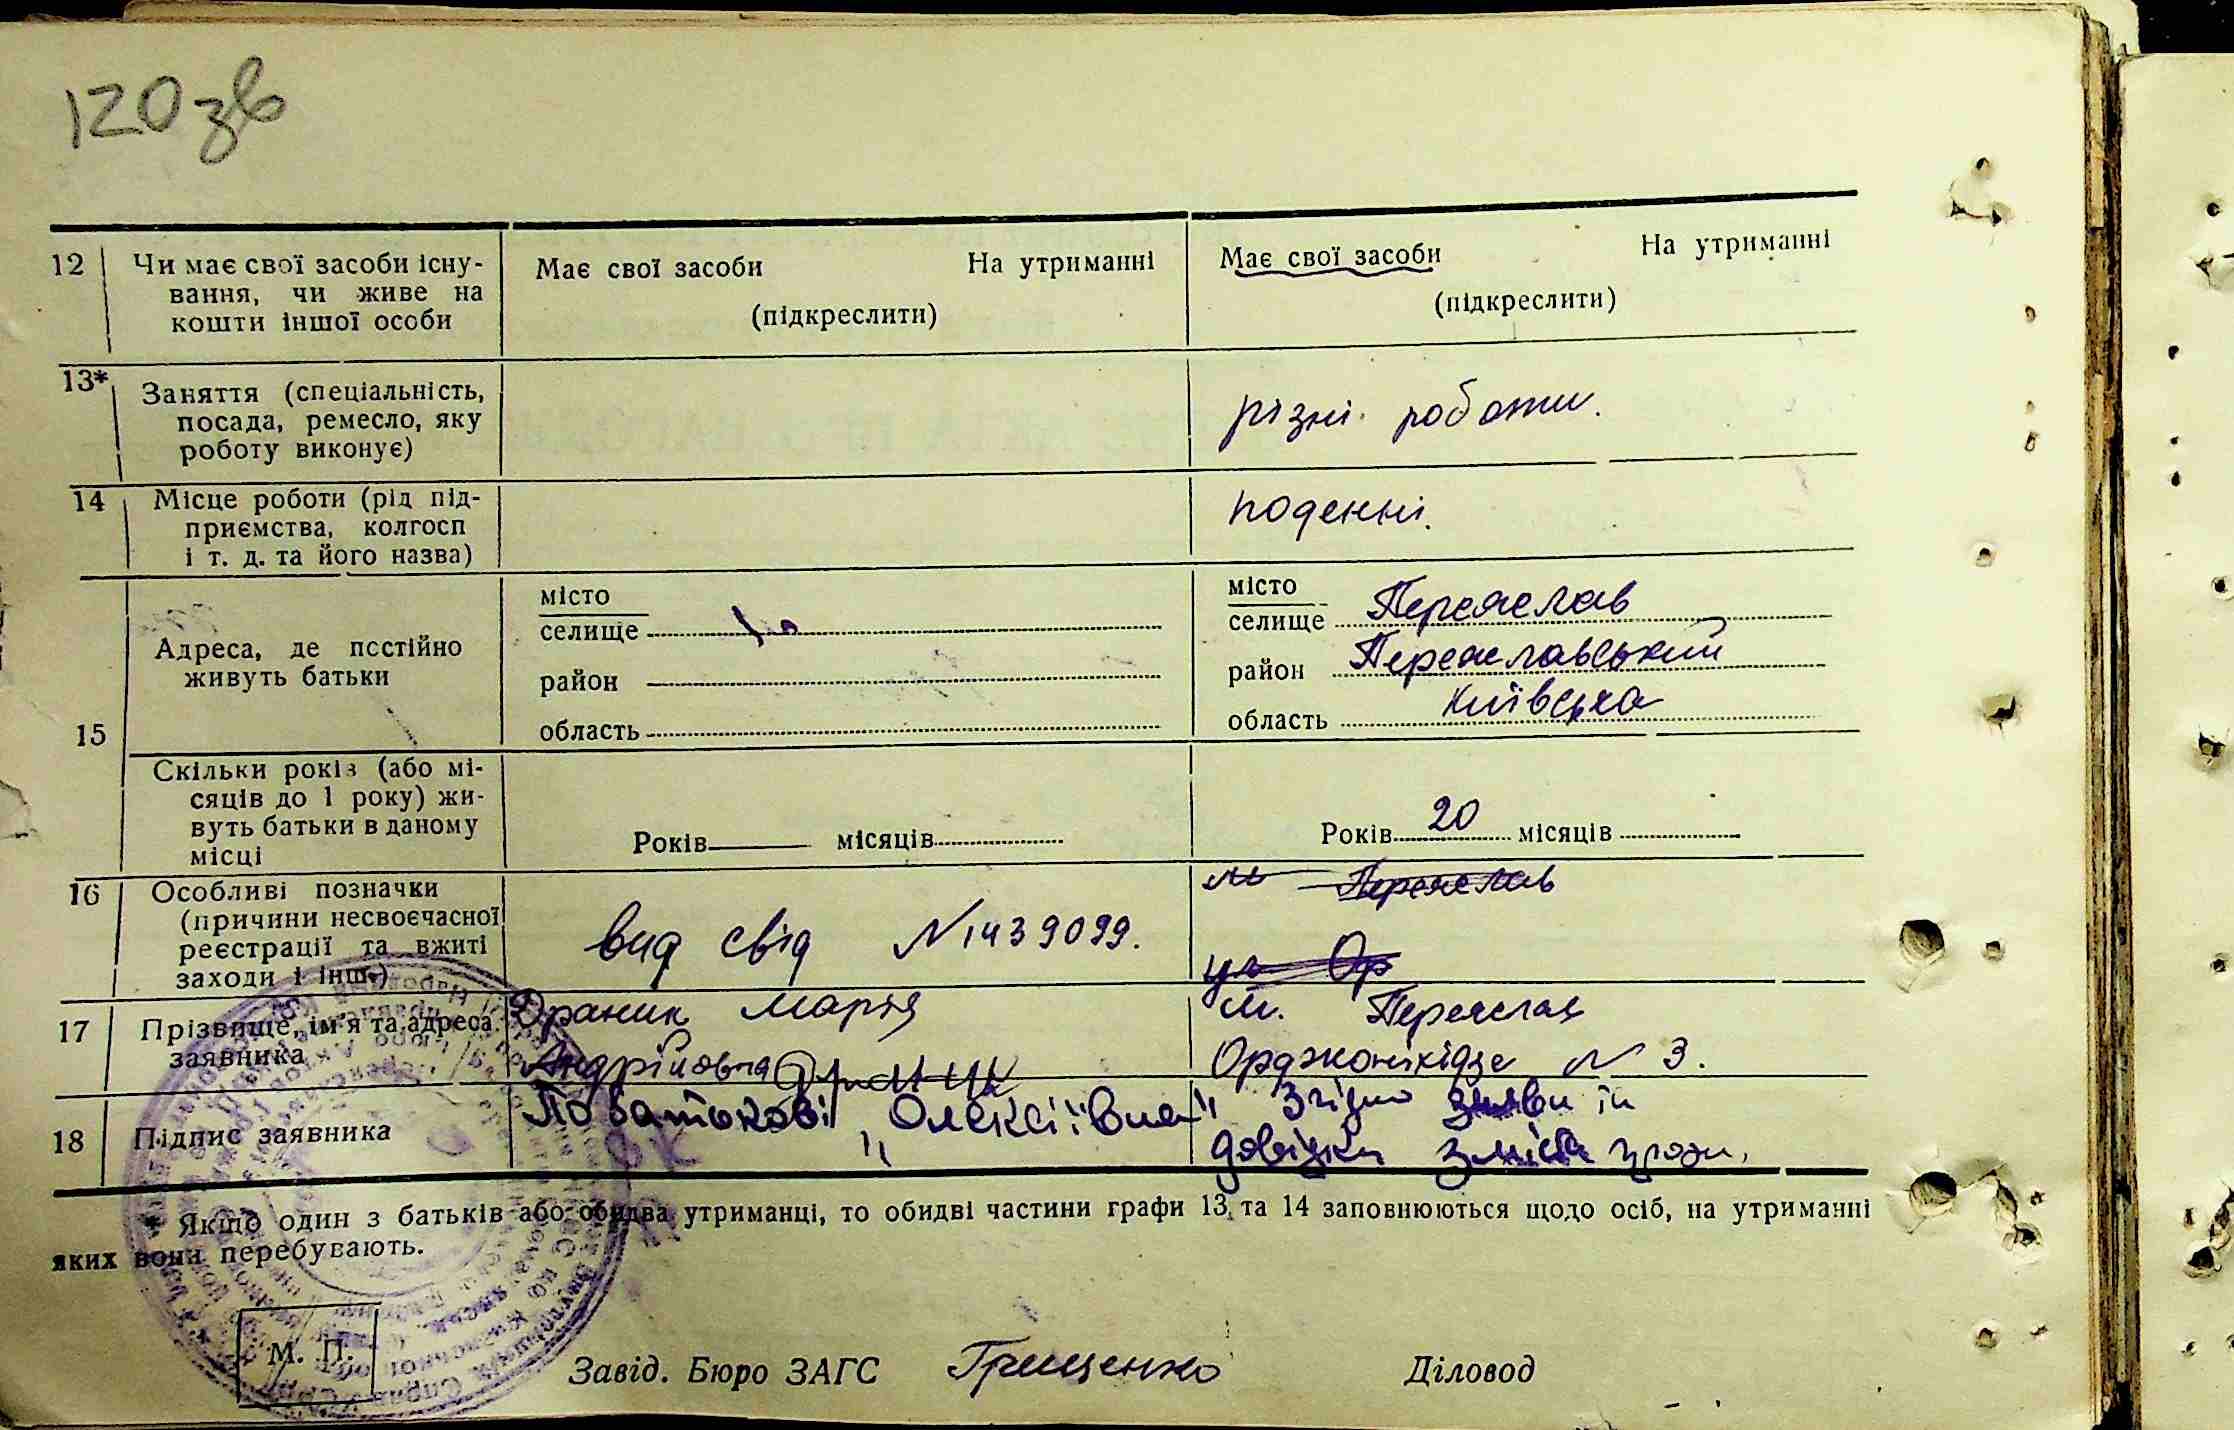 120зв
12 Чи має свої засоби існу-
вання, чи живе на
кошти іншої особи
Має свої засоби На утриманні
(підкреслити)
Має свої засоби На утриманні
(підкреслити)
13* Заняття (спеціальність,
посада, ремесло, яку
роботу виконує)
різні роботи.
14 Місце роботи (рід під-
приємства, колгосп
і т. д. та його назва)
поденні.
15 Адреса, де постійно
живуть батьки
місто
селище
район
область
місто
селище Переяслав
район Переяславський
область Київська
Скільки років (або мі-
сяців до 1 року) жи-
вуть батьки в даному
місці
Років місяців
Років 20 місяців
16 Особливі позначки
(причини несвоєчасної
реєстрації та вжиті
заходи і інш.)
вид свід N 1439099.
м Переяслав
ул Ор
17 Прізвище, ім'я та адреса
заявника
Драник Марія
Андрійовна
м. Переяслав
Орджонікідзе N 3.
18 Підпис заявника
По батькові „Олексіївна"
Згідно заяви ій
довідки
* Якщо один з батьків або обидва утриманці, то обидві частини графи 13 та 14 заповнюються щодо осіб, на утриманні
яких вони перебувають.
М. П.
Завід. Бюро ЗАГС Грищенко Діловод